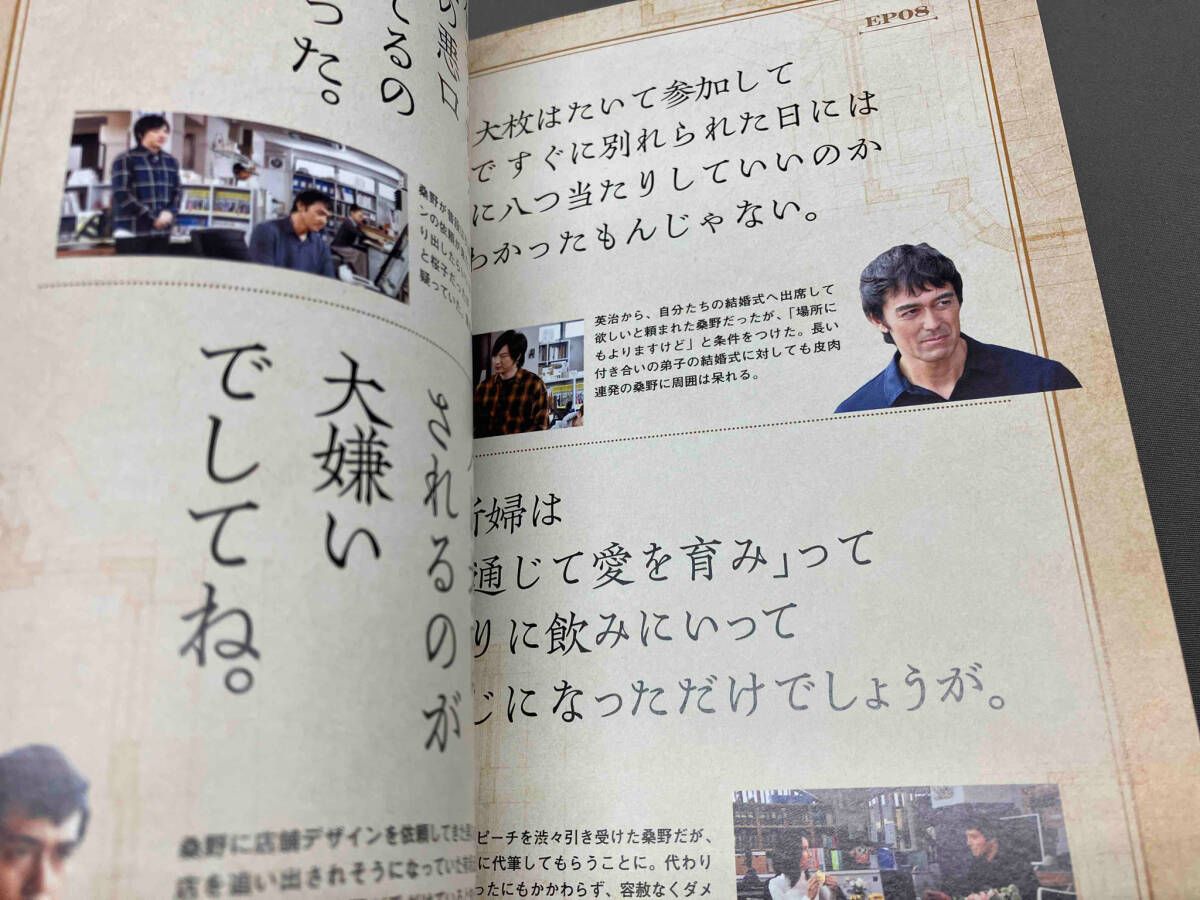 い悪口
てるの
った。
桑野が
ンの依頼が
り出したら
と桜子だった
疑っていた
されるのが
大嫌い
でしてね。
桑野に店舗デザインを依頼してきた
店を追い出されそうになっていた
EP08
大枚はたいて参加して
ですぐに別れられた日には
に八つ当たりしていいのか
わかったもんじゃない。
英治から、自分たちの結婚式へ出席して
欲しいと頼まれた桑野だったが、「場所に
もよりますけど」と条件をつけた。長い
付き合いの弟子の結婚式に対しても皮肉
連発の桑野に周囲は呆れる。
新婦は
通じて愛を育み」って
りに飲みにいって
じになっただけでしょうが。
ピーチを渋々引き受けた桑野だが、
に代筆してもらうことに。代わり
ったにもかかわらず、容赦なくダメ